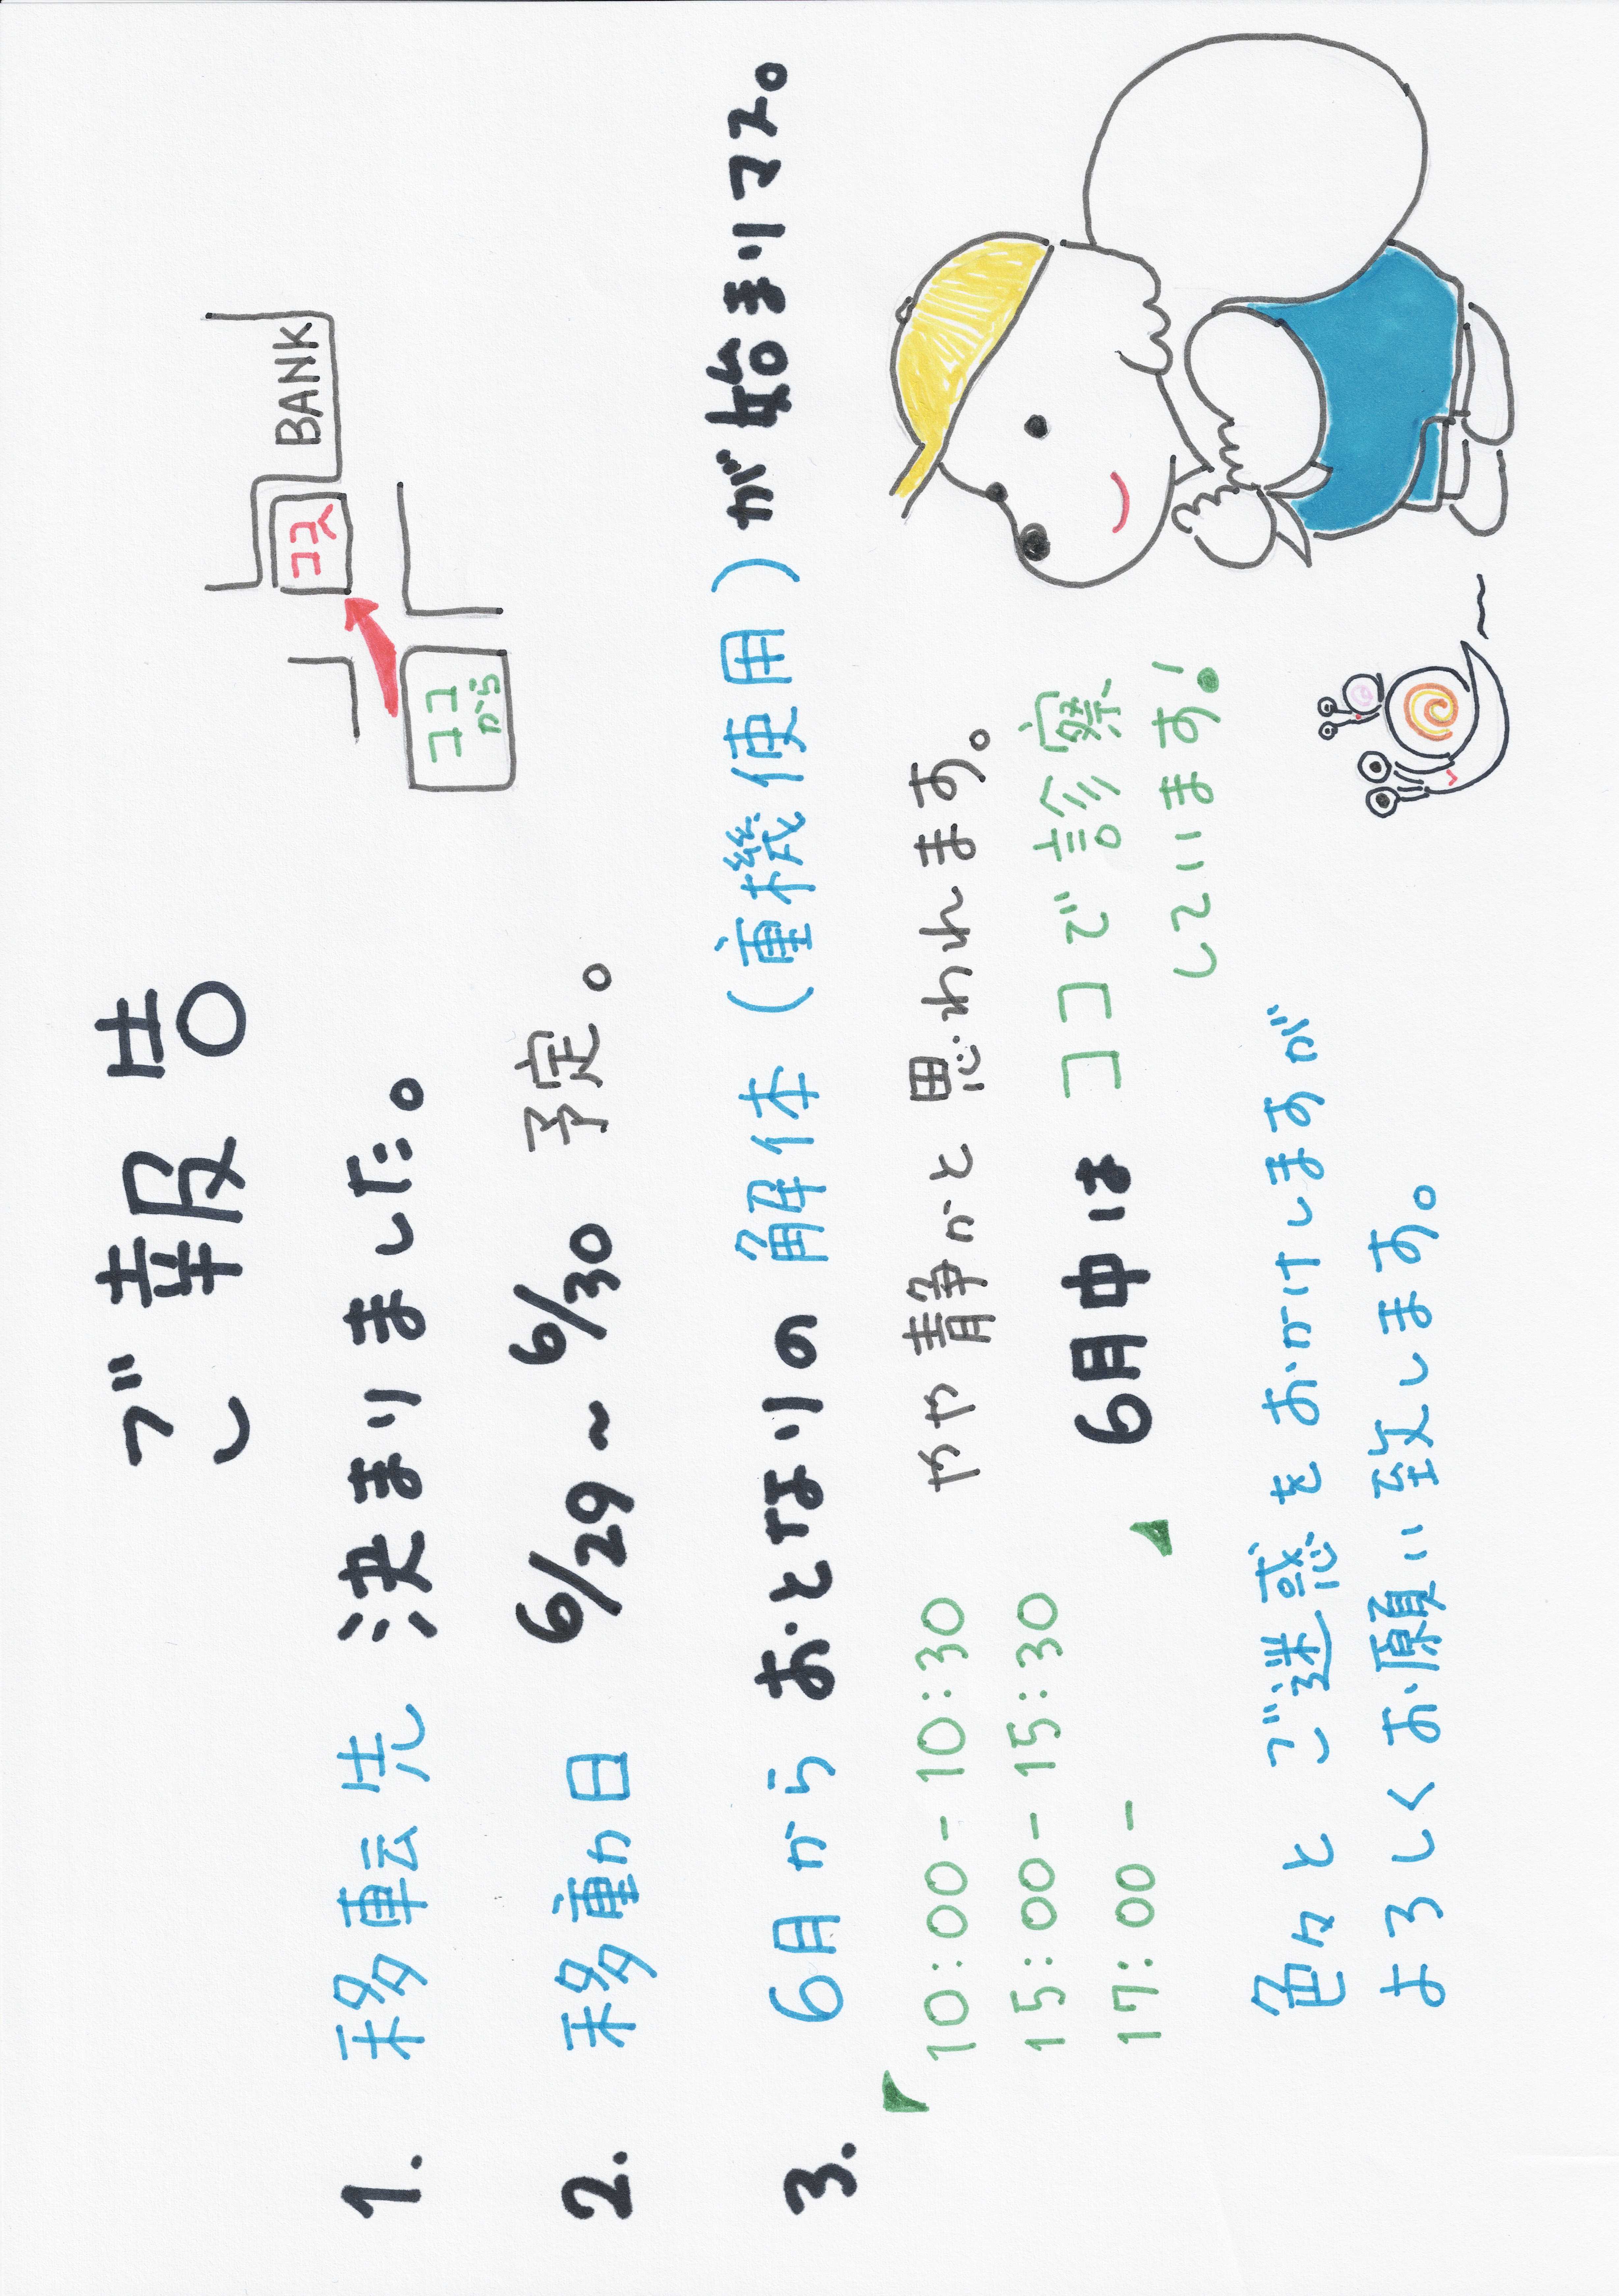 ご報告
1. 移転先 決まりました。
BANK
ココへ
ココ
から
2. 移動日 6/29～6/30 予定。
3. 6月から おとなりの 解体(重機使用)が始まりマス。
10:00-10:30 やや静かと思われます。
15:00-15:30
17:00-
6月中は ココで診察
しています!
色々と ご迷惑を おかけしますが
よろしくお願い致します。